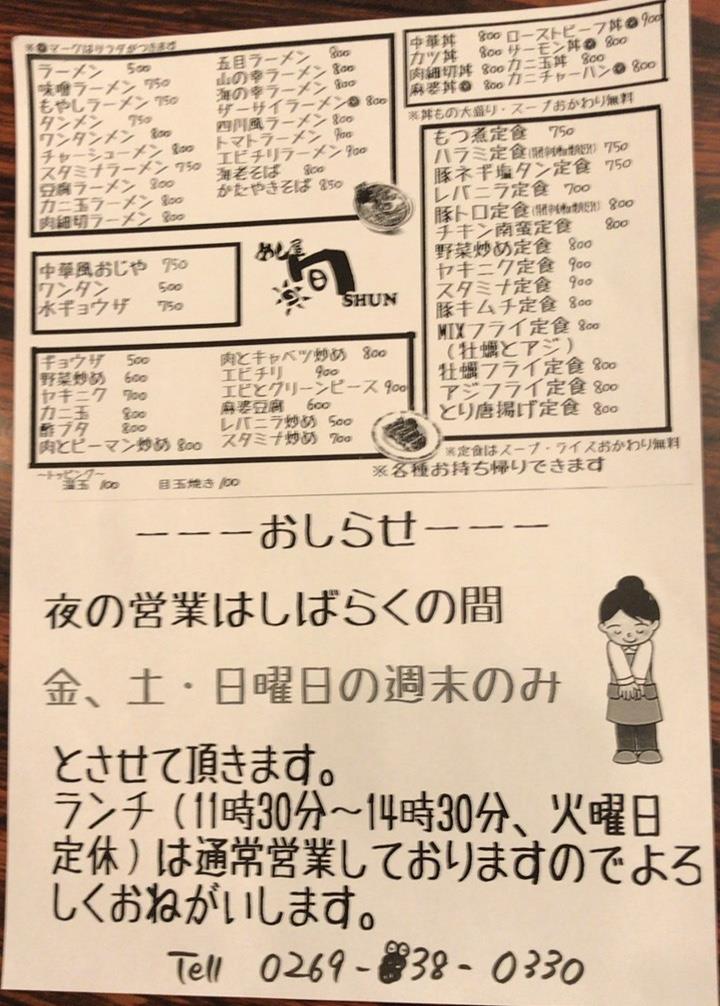 ※●マークはサラダがつきます
ラーメン 500
味噌ラーメン 750
もやしラーメン 750
タンメン 750
ワンタンメン 800
チャーシューメン 800
スタミナラーメン 750
豆腐ラーメン 800
カニ玉ラーメン 800
肉細切ラーメン 800
五目ラーメン 800
山の幸ラーメン 800
海の幸ラーメン 800
ザーサイラーメン● 800
四川風ラーメン 800
トマトラーメン 900
エビチリラーメン 900
海老そば 800
かたやきそば 850
中華丼 800
カツ丼 800
肉細切丼 800
麻婆丼● 800
ローストビーフ丼● 900
サーモン丼● 800
カニ玉丼 800
カニチャーハン● 800
※丼もの大盛り・スープおかわり無料
中華風おじや 750
ワンタン 500
水ギョウザ 750
めし屋
旬
SHUN
もつ煮定食 750
ハラミ定食 750
豚ネギ塩タン定食 750
レバニラ定食 700
豚トロ定食 800
チキン南蛮定食 800
野菜炒め定食 800
ヤキニク定食 900
スタミナ定食 900
豚キムチ定食 800
MIXフライ定食 800
(牡蠣とアジ)
牡蠣フライ定食 800
アジフライ定食 800
とり唐揚げ定食 800
ギョウザ 500
野菜炒め 600
ヤキニク 700
カニ玉 800
酢ブタ 800
肉とピーマン炒め 800
肉とキャベツ炒め 800
エビチリ 900
エビとグリーンピース 900
麻婆豆腐 600
レバニラ炒め 500
スタミナ炒め 700
※定食はスープ・ライスおかわり無料
※各種お持ち帰りできます
~トッピング~
温玉 100 目玉焼き 100
---おしらせ---
夜の営業はしばらくの間
金、土・日曜日の週末のみ
とさせて頂きます。
ランチ(11時30分~14時30分、火曜日
定休)は通常営業しておりますのでよろ
しくおねがいします。
Tell 0269-38-0330